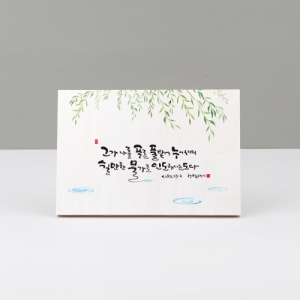 그가 나를 푸른 풀밭에 누이시며
쉴만한 물가로 인도하시는도다